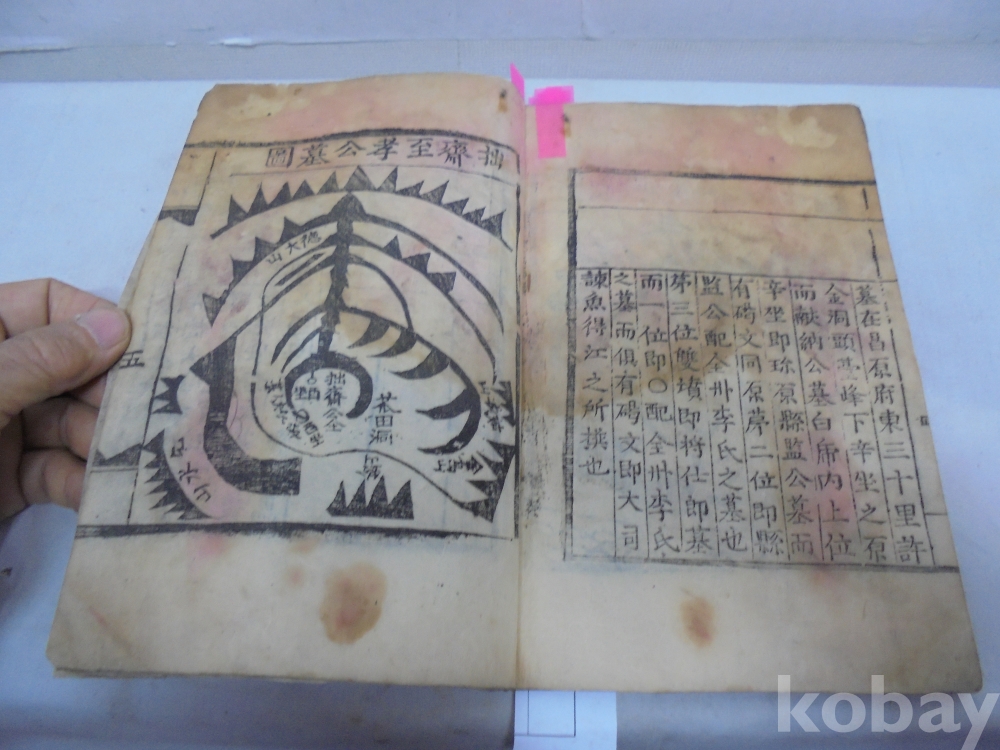 墓在昌原府東三十里許
金洞頭峰下辛坐之原
而献納公墓白虎内上位
辛坐即珎原縣監公墓而
有碣文同原苐二位即縣
監公配全州李氏之墓也
苐三位雙墳即将仕郎墓
而一位即〇配全州李氏
之墓而俱有碣文即大司
諫魚得江之所撰也
拙齋至孝公墓圖
大山
拙齋公
茶田洞
五
kobay